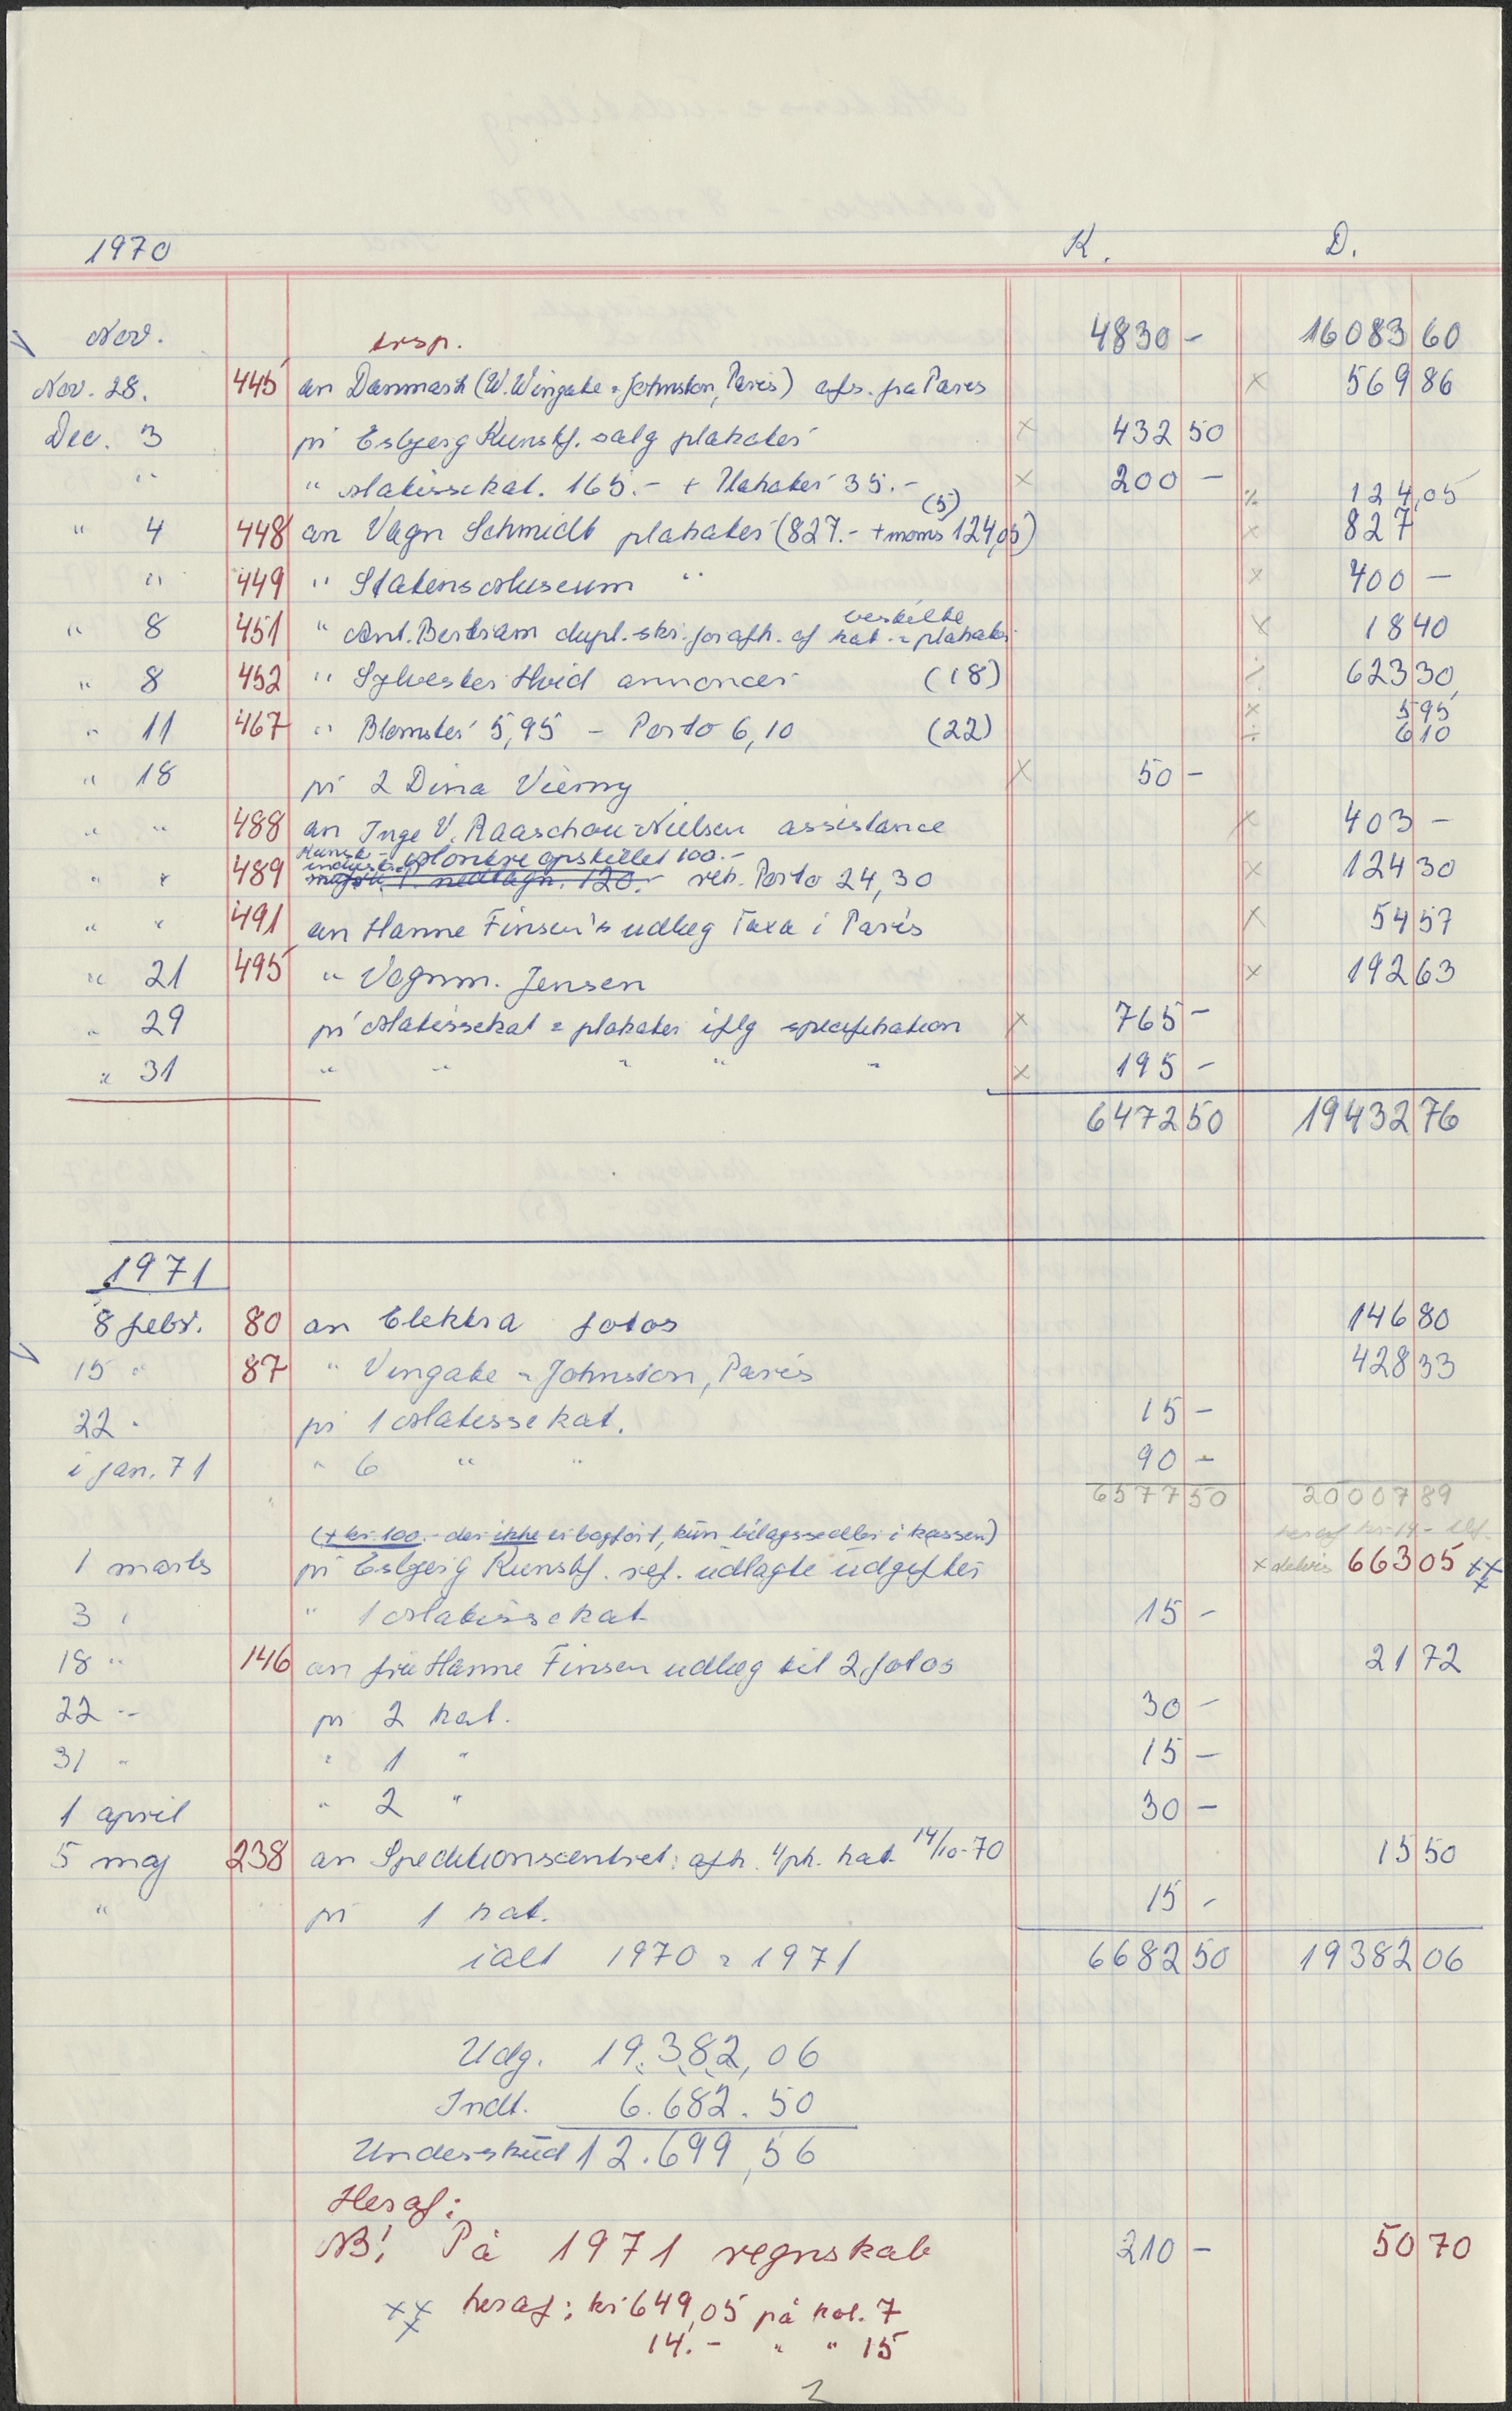 1970 K. D.
Nov. trsp. 4830 - 16083 60
Nov. 28. 445 an Danmark (W. Wingate & Johnston, Paris) afs. fra Paris × 569 86
Dec. 3 pr Esbjerg Kunstf. salg plakater × 432 50
" " Matissekat. 165.- + Plakater 35.- × 200 -
(5) 124,05
" 4 448 an Vagn Schmidt plakater (827.- + moms 124,05) × 827
" 449 " Statens Museum " × 400 -
veskilte
" 8 451 " Ant. Bertram dupl. skr. for afh. af kat. & plakater × 18 40
" 8 452 " Sylvester Hvid annoncer (18) 623 30
× 5 95
" 11 467 " Blomster 5,95 - Porto 6,10 (22) 6 10
" 18 pr 2 Dina Vierny × 50 -
" " 488 an Inge V. Raaschou-Nielsen assistance × 403 -
Kunst- Montre opstillet 100.-
" " 489 nedtagn. 120.- reh. Porto 24,30 × 124 30
" " 491 an Hanne Finsen's udlæg Taxa i Paris × 54 57
" 21 495 " Vognm. Jensen × 192 63
" 29 pr Matissekat & plakater iflg specifikation × 765 -
" 31 " " " " " × 195 -
6472 50 19432 76
1971
8 febr. 80 an Elektra fotos 146 80
15 " 87 " Vingate & Johnston, Paris 428 33
22 " pr 1 Matissekat. 15 -
i jan. 71 " 6 " " 90 -
6577 50 20007 89
(+ kr. 100.- der ikke er bogført, kun bilagssedler i kassen) heraf kr 14.-
1 marts pr Esbjerg Kunstf. ref. udlagte udgifter × delvis 663 05 ×××
3 " " 1 Matissekat 15 -
18 " 146 an fru Hanne Finsen udlæg til 2 fotos 21 72
22 " pr 2 kat. 30 -
31 " " 1 " 15 -
1 april " 2 " 30 -
5 maj 238 an Speditionscentret: afh. 4 pk. kat. 14/10-70 15 50
" pr 1 kat. 15 -
ialt 1970 & 1971 6682 50 19382 06
Udg. 19.382,06
Indt. 6.682.50
Underskud 12.699,56
Heraf:
NB! På 1971 regnskab 210 - 50 70
××× heraf: kr 649,05 på kol. 7
14.- " " 15
2